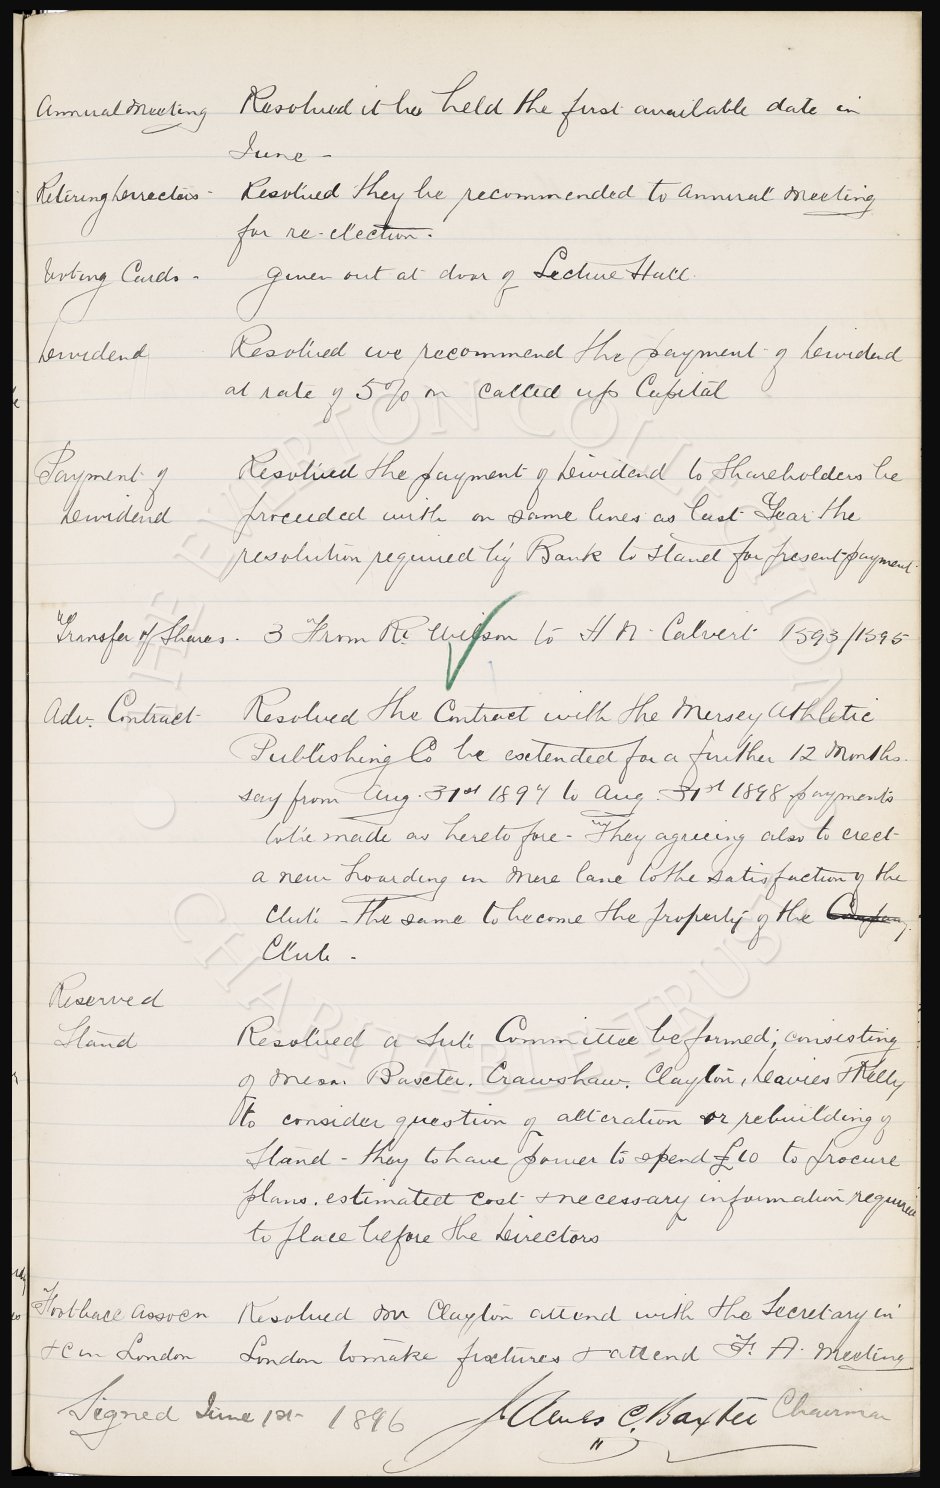 Annual Meeting Resolved it be held the first available date in
June -
Retiring Directors - Resolved they be recommended to annual meeting
for re-election.
Voting Cards - given out at door of Lecture Hall.
Dividend Resolved we recommend the payment of Dividend
at rate of 5% on called up Capital
Payment of Resolved the payment of Dividend to Shareholders be
Dividend proceeded with on same lines as last Year the
resolution required by Bank to stand for present payment.
Transfer of Shares. 3 From R. Wilson to H N. Calvert 1593/1595
Adv. Contract Resolved the Contract with the Mersey Athletic
Publishing Co be extended for a further 12 Months.
say from Aug. 31st 1897 to Aug. 31st 1898 payments
to be made as heretofore - They agreeing also to erect
a new hoarding in Mere lane to the satisfaction of the
Club - the same to become the property of the Company
Club -
Reserved
Stand Resolved a Sub Committee be formed, consisting
of Messrs. Baxter, Crawshaw, Clayton, Davies & Kelly
to consider question of alteration or rebuilding of
Stand - they to have power to spend £10 to procure
plans, estimated cost & necessary information required
to place before the Directors
Football Assocn Resolved Mr Clayton attend with the Secretary in
&c in London London to make fixtures & attend F. A. Meeting
Signed June 1st 1896 James C. Baxter Chairman
THE EVERTON COLLECTION
CHARITABLE TRUST